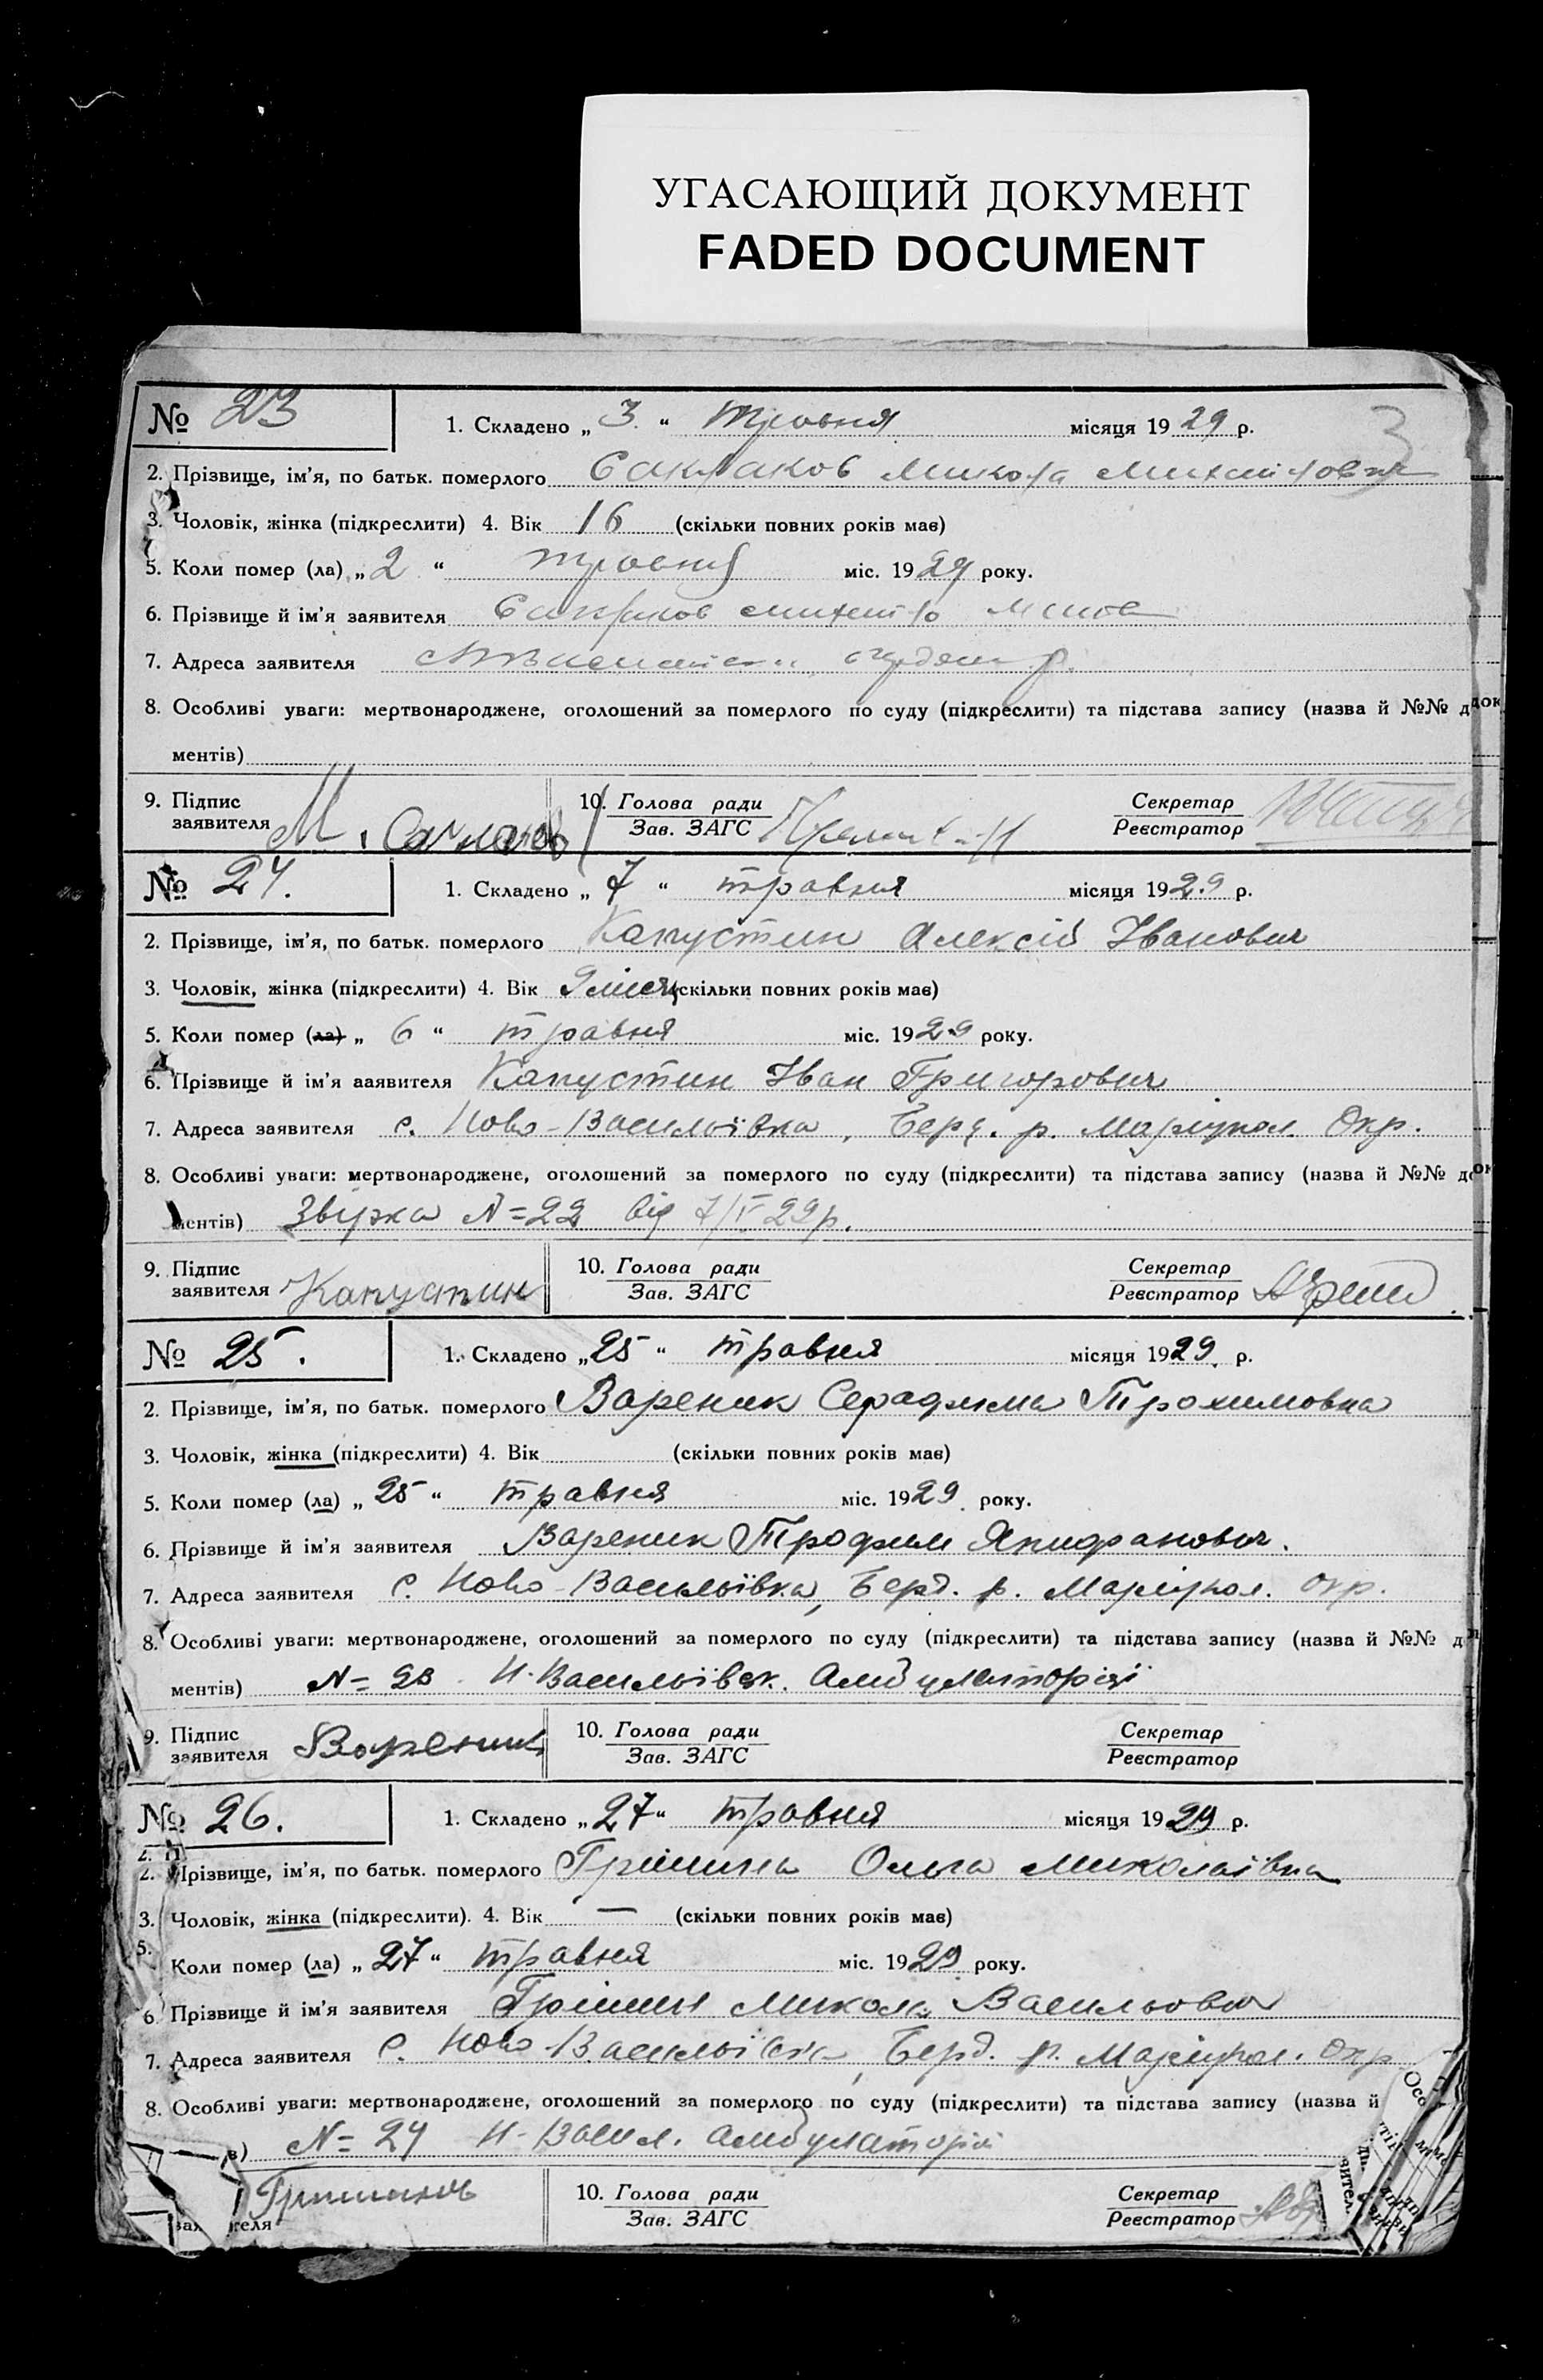 УГАСАЮЩИЙ ДОКУМЕНТ
FADED DOCUMENT
3
№ 23 1. Складено „ 3 “ травня місяця 1929 р.
2. Прізвище, ім'я, по батьк. померлого Саклаков Микола Михайлович
3. Чоловік, жінка (підкреслити) 4. Вік 16 (скільки повних років має)
5. Коли помер (ла) „ 2 “ травня міс. 1929 року.
6. Прізвище й ім'я заявителя Саклаков Михайло
7. Адреса заявителя
8. Особливі уваги: мертвонароджене, оголошений за померлого по суду (підкреслити) та підстава запису (назва й №№ д
ментів)
9. Підпис заявителя М. Саклаков 10. Голова ради Зав. ЗАГС Секретар Реєстратор
№ 24. 1. Складено „ 7 “ травня місяця 1929 р.
2. Прізвище, ім'я, по батьк. померлого Капустин Алексій Іванович
3. Чоловік, жінка (підкреслити) 4. Вік 9 місяц скільки повних років має)
5. Коли помер (ла) „ 6 “ травня міс. 1929 року.
6. Прізвище й ім'я ааявителя Капустин Іван Григорович
7. Адреса заявителя с. Ново-Васильівка, Берд. р. Маріупол. Окр.
8. Особливі уваги: мертвонароджене, оголошений за померлого по суду (підкреслити) та підстава запису (назва й №№ до
ментів) N=22 від 7/V 29 р.
9. Підпис заявителя Капустин 10. Голова ради Зав. ЗАГС Секретар Реєстратор
№ 25. 1. Складено „ 25 “ травня місяця 1929 р.
2. Прізвище, ім'я, по батьк. померлого Вареник Серафима Трохимовна
3. Чоловік, жінка (підкреслити) 4. Вік (скільки повних років має)
5. Коли помер (ла) „ 25 “ травня міс. 1929 року.
6. Прізвище й ім'я заявителя Вареник Трофим Япифанович.
7. Адреса заявителя с. Ново-Васильівка, Берд. р. Маріупол. окр.
8. Особливі уваги: мертвонароджене, оголошений за померлого по суду (підкреслити) та підстава запису (назва й №№ д
ментів) N= 23 Н-Васильівск. Амбулаторії
9. Підпис заявителя Вареник 10. Голова ради Зав. ЗАГС Секретар Реєстратор
№ 26. 1. Складено „ 27 “ травня місяця 1929 р.
2. Прізвище, ім'я, по батьк. померлого Грішина Ольга Миколаівна
3. Чоловік, жінка (підкреслити). 4. Вік — (скільки повних років має)
5. Коли помер (ла) „ 27 “ травня міс. 1929 року.
6 Прізвище й ім'я заявителя Грішин Микола Васильович
7. Адреса заявителя с. Ново-Васильівка, Берд. р. Маріупол. Окр.
8. Особливі уваги: мертвонароджене, оголошений за померлого по суду (підкреслити) та підстава запису (назва й
в) N= 24 Н-Васил. амбулаторії
10. Голова ради Зав. ЗАГС Секретар Реєстратор